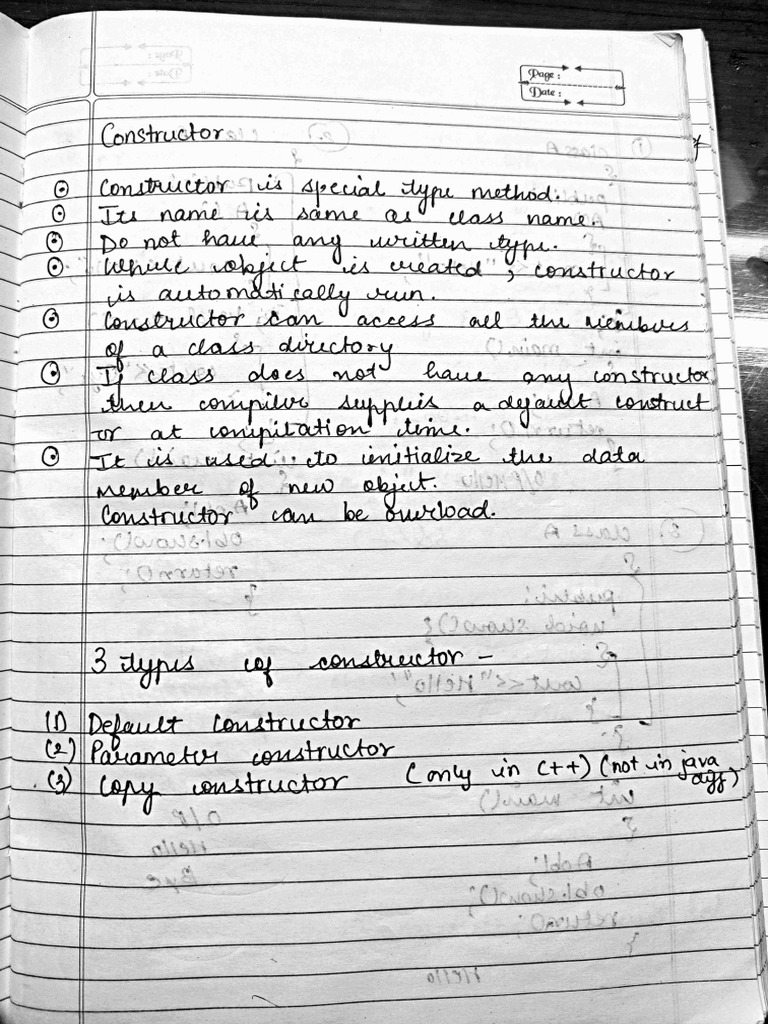 Page :
Date :
Constructor
Constructor is special type method.
Its name is same as class name.
Do not have any written type.
While object is created, constructor
is automatically run.
Constructor can access all the members
of a class directory
If class does not have any constructor
then compiler supplies a default construct
or at compilation time.
It is used to initialize the data
member of new object.
Constructor can be overload.
3 types of constructor -
(1) Default constructor
(2) Parameter constructor
(3) Copy constructor (only in C++) (not in java
diff)